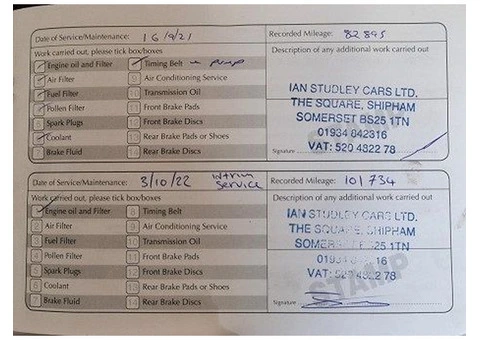 Date of Service/Maintenance: 16/9/21 Recorded Mileage: 82895
Work carried out, please tick box/boxes Description of any additional work carried out
Engine oil and Filter Timing Belt - pump
Air Filter 9 Air Conditioning Service
Fuel Filter 10 Transmission Oil
Pollen Filter 11 Front Brake Pads
5 Spark Plugs 12 Front Brake Discs
Coolant 13 Rear Brake Pads or Shoes
7 Brake Fluid 14 Rear Brake Discs
IAN STUDLEY CARS LTD.
THE SQUARE, SHIPHAM
SOMERSET BS25 1TN
01934 842316
VAT: 520 4822 78
Signature
Date of Service/Maintenance: 3/10/22 Intrim Service Recorded Mileage: 101734
Work carried out, please tick box/boxes Description of any additional work carried out
Engine oil and Filter 8 Timing Belt
2 Air Filter 9 Air Conditioning Service
3 Fuel Filter 10 Transmission Oil
4 Pollen Filter 11 Front Brake Pads
5 Spark Plugs 12 Front Brake Discs
6 Coolant 13 Rear Brake Pads or Shoes
7 Brake Fluid 14 Rear Brake Discs
IAN STUDLEY CARS LTD.
THE SQUARE, SHIPHAM
25 1TN
16
VAT: 78
STAMP
Signature